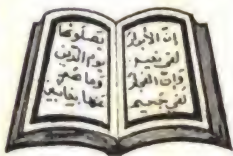 إن الأبرار
لفى نعيم
وإن الفجار
لفى جحيم
يصلونها
يوم الدين
وما هم
عنها بغائبين